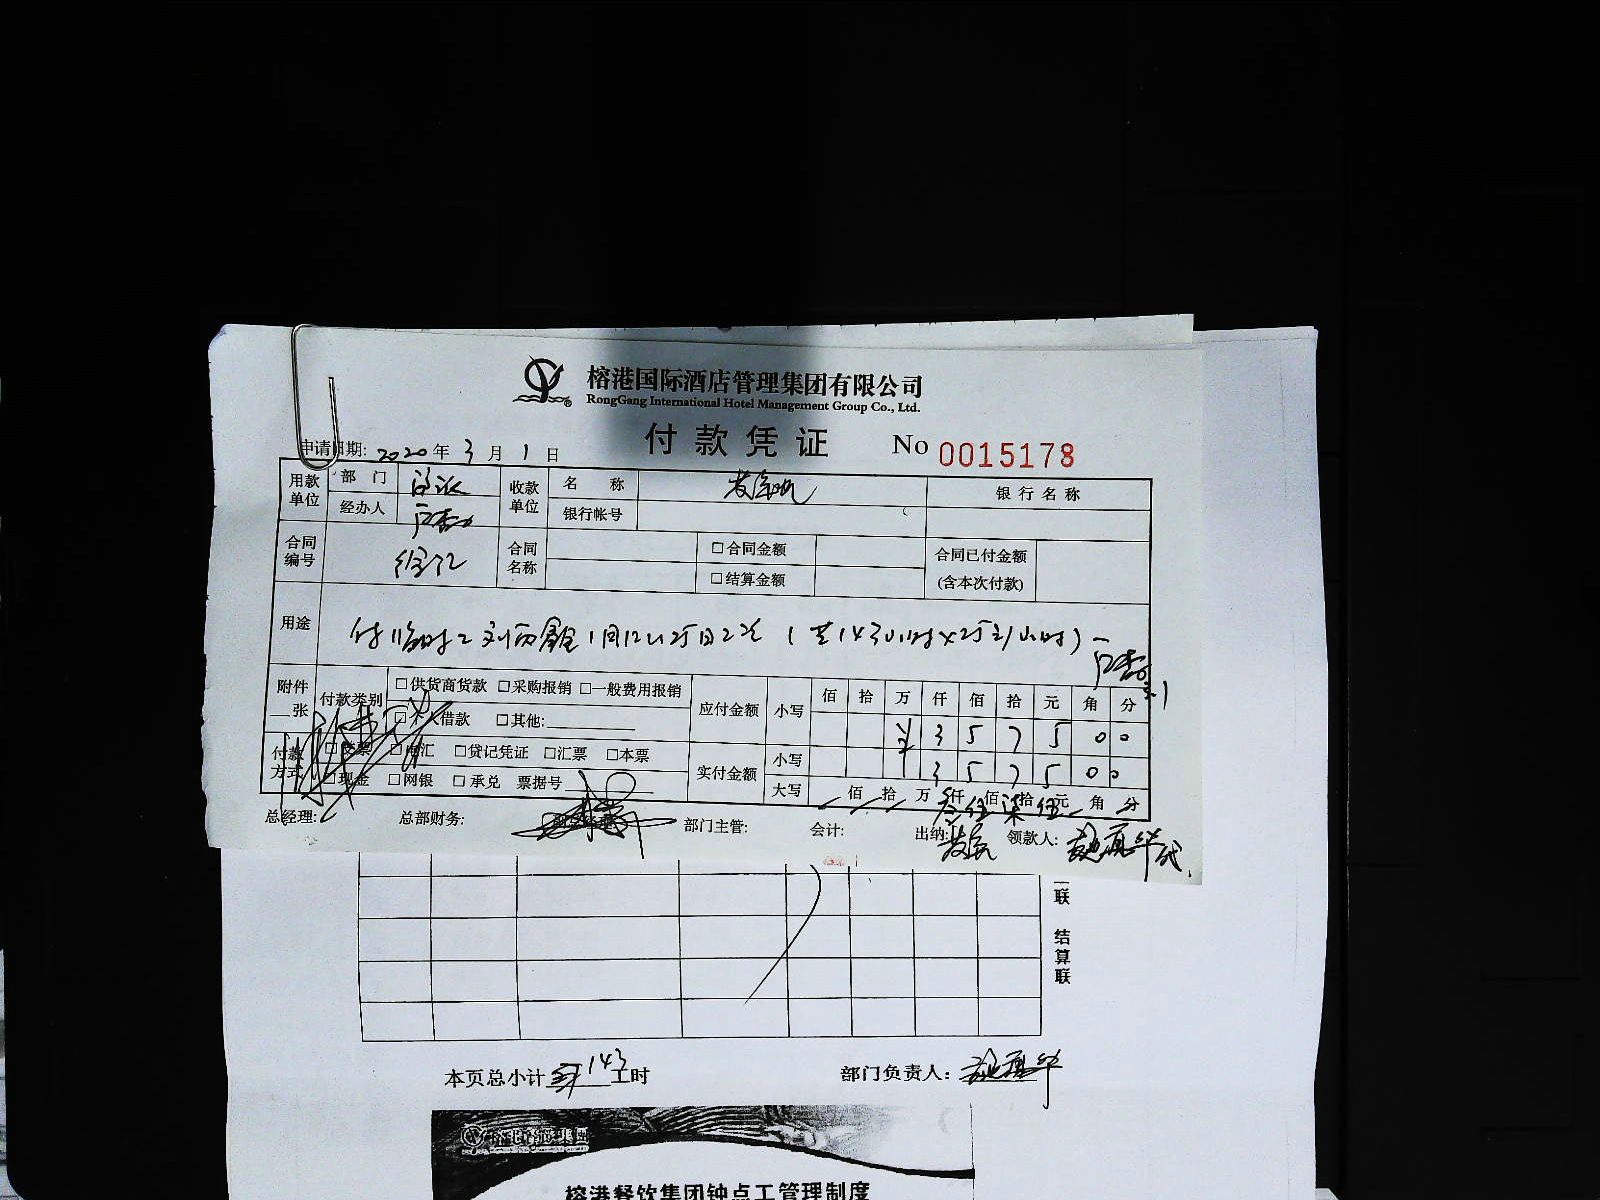 榕港国际酒店管理集团有限公司
RongGang International Hotel Management Group Co., Ltd.
付款凭证 No 0015178
申请日期: 2020 年 3 月 1 日
用款单位 部门 收款单位 名称 银行名称
经办人 银行帐号
合同编号 徐汇 合同名称 □合同金额 合同已付金额
□结算金额 (含本次付款)
用途 付临时工刘丙鑫1月12以25日2次 (共143小时×25元/小时)
附件 张 付款类别 □供货商货款 □采购报销 □一般费用报销 应付金额 小写 佰 拾 万 仟 佰 拾 元 角 分
□个人借款 □其他: ¥ 3 5 7 5 0 0
付款方式 □支票 □电汇 □贷记凭证 □汇票 □本票 实付金额 小写 3 5 7 5 0 0
□现金 □网银 □承兑 票据号 大写 佰 拾 万 叁仟 伍佰 柒拾 伍元 角 分
总经理: 总部财务: 部门主管: 会计: 出纳: 领款人:
联
结算联
本页总小计 143 工时 部门负责人:
榕港餐饮集团钟点工管理制度